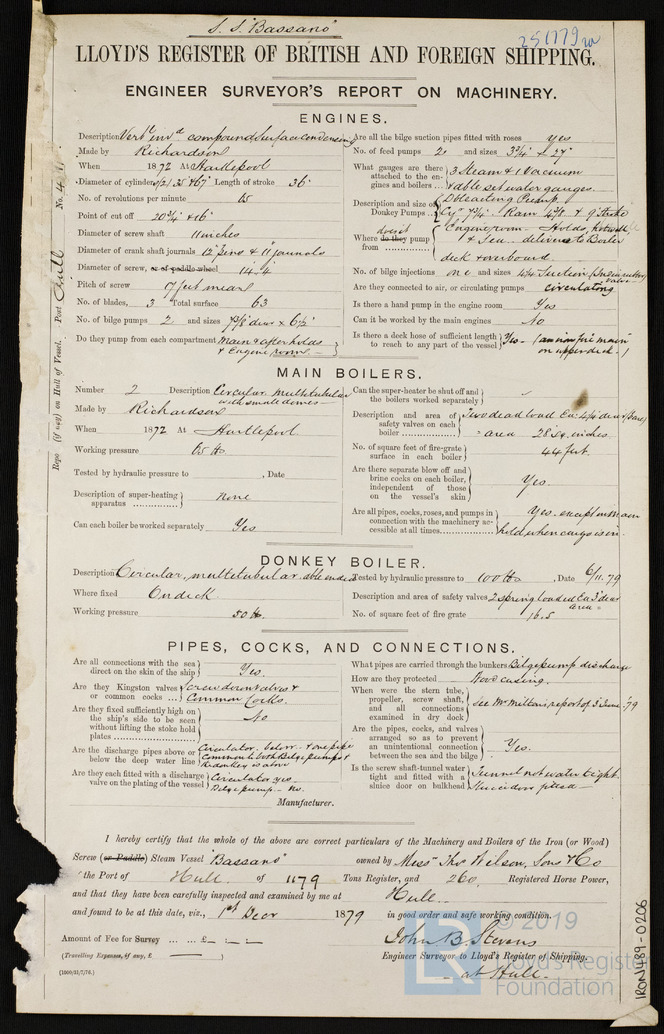 S. S. "Bassano"
LLOYD'S REGISTER OF BRITISH AND FOREIGN SHIPPING.
ENGINEER SURVEYOR'S REPORT ON MACHINERY.
ENGINES.
Description Vert^l inv^d compound surface condensing
Made by Richardson
When 1872 At Hartlepool
Diameter of cylinders 35 & 67 Length of stroke 36"
No. of revolutions per minute
Point of cut off 20¾" & 16"
Diameter of screw shaft 11 inches
Diameter of crank shaft journals 12" pins & 11" journals
Diameter of screw, or of paddle wheel 14.4
Pitch of screw 17 feet mean
No. of blades, 3 Total surface 63
No. of bilge pumps 2 and sizes
Do they pump from each compartment Main & after holds
& Engine room
Are all the bilge suction pipes fitted with roses yes
No. of feed pumps 2 and sizes 3¾" & 27"
What gauges are there attached to the engines and boilers 3 Steam & 1 Vacuum
& able set water gauges.
Description and size of Donkey Pumps Dble acting Pump.
Cy^r 7¼" Ram 4⅞ & 9" Stroke
Where does it pump from Engine room, Holds, hotwell
& Sea. delivers to Boiler
deck & overboard.
No. of bilge injections one and sizes 4¼ Suction
Are they connected to air, or circulating pumps circulating
Is there a hand pump in the engine room Yes
Can it be worked by the main engines No
Is there a deck hose of sufficient length to reach to any part of the vessel Yes
on upper deck.
MAIN BOILERS.
Number 2 Description Circular multitubular
with small domes
Made by Richardson
When 1872 At Hartlepool
Working pressure 65 lbs
Tested by hydraulic pressure to , Date
Description of super-heating apparatus None
Can each boiler be worked separately Yes
Can the super-heater be shut off and the boilers worked separately
Description and area of safety valves on each boiler Two dead load Ea: 4¼ dia
= area 28 sq. inches
No. of square feet of fire-grate surface in each boiler 44 feet
Are there separate blow off and brine cocks on each boiler, independent of those on the vessel's skin Yes.
Are all pipes, cocks, roses, and pumps in connection with the machinery accessible at all times Yes. except in Main
hold, when cargo is in.
DONKEY BOILER.
Description Circular, multitubular. dble ended
Where fixed On deck
Working pressure 50 lbs.
Tested by hydraulic pressure to 100 lbs. , Date 6/11.79
Description and area of safety valves 2 spring loaded Ea 3" dia
area =
No. of square feet of fire grate 16.5
PIPES, COCKS, AND CONNECTIONS.
Are all connections with the sea direct on the skin of the ship Yes.
Are they Kingston valves or common cocks Screw down valves &
Common Cocks.
Are they fixed sufficiently high on the ship's side to be seen without lifting the stoke hold plates No
Are the discharge pipes above or below the deep water line Circulator. below. & one pipe
common to both Bilge pumps &
donkey is above
Are they each fitted with a discharge valve on the plating of the vessel Circulator yes.
Bilge pump - no.
What pipes are carried through the bunkers Bilge pump discharge
How are they protected Wood casing.
When were the stern tube, propeller, screw shaft, and all connections examined in dry dock See Mr Milton's report of 3 June '79
Are the pipes, cocks, and valves arranged so as to prevent an unintentional connection between the sea and the bilge Yes.
Is the screw shaft-tunnel water tight and fitted with a sluice door on bulkhead Tunnel not water tight.
Sluice door fitted
Manufacturer.
I hereby certify that the whole of the above are correct particulars of the Machinery and Boilers of the Iron (or Wood)
Screw (or Paddle) Steam Vessel "Bassano" owned by Mess^rs Tho^s Wilson, Sons & Co
the Port of Hull of 1179 Tons Register, and 260 Registered Horse Power,
and that they have been carefully inspected and examined by me at Hull.
and found to be at this date, viz., 1st Decr 1879 in good order and safe working condition.
John B. Stevens
Amount of Fee for Survey ... ... £
(Travelling Expenses, if any, £ )
Engineer Surveyor to Lloyd's Register of Shipping.
at Hull.
Port Hull
(if any) on Hull of Vessel.
IRON489-0206
© 2019
LR
Lloyd's Register
Foundation